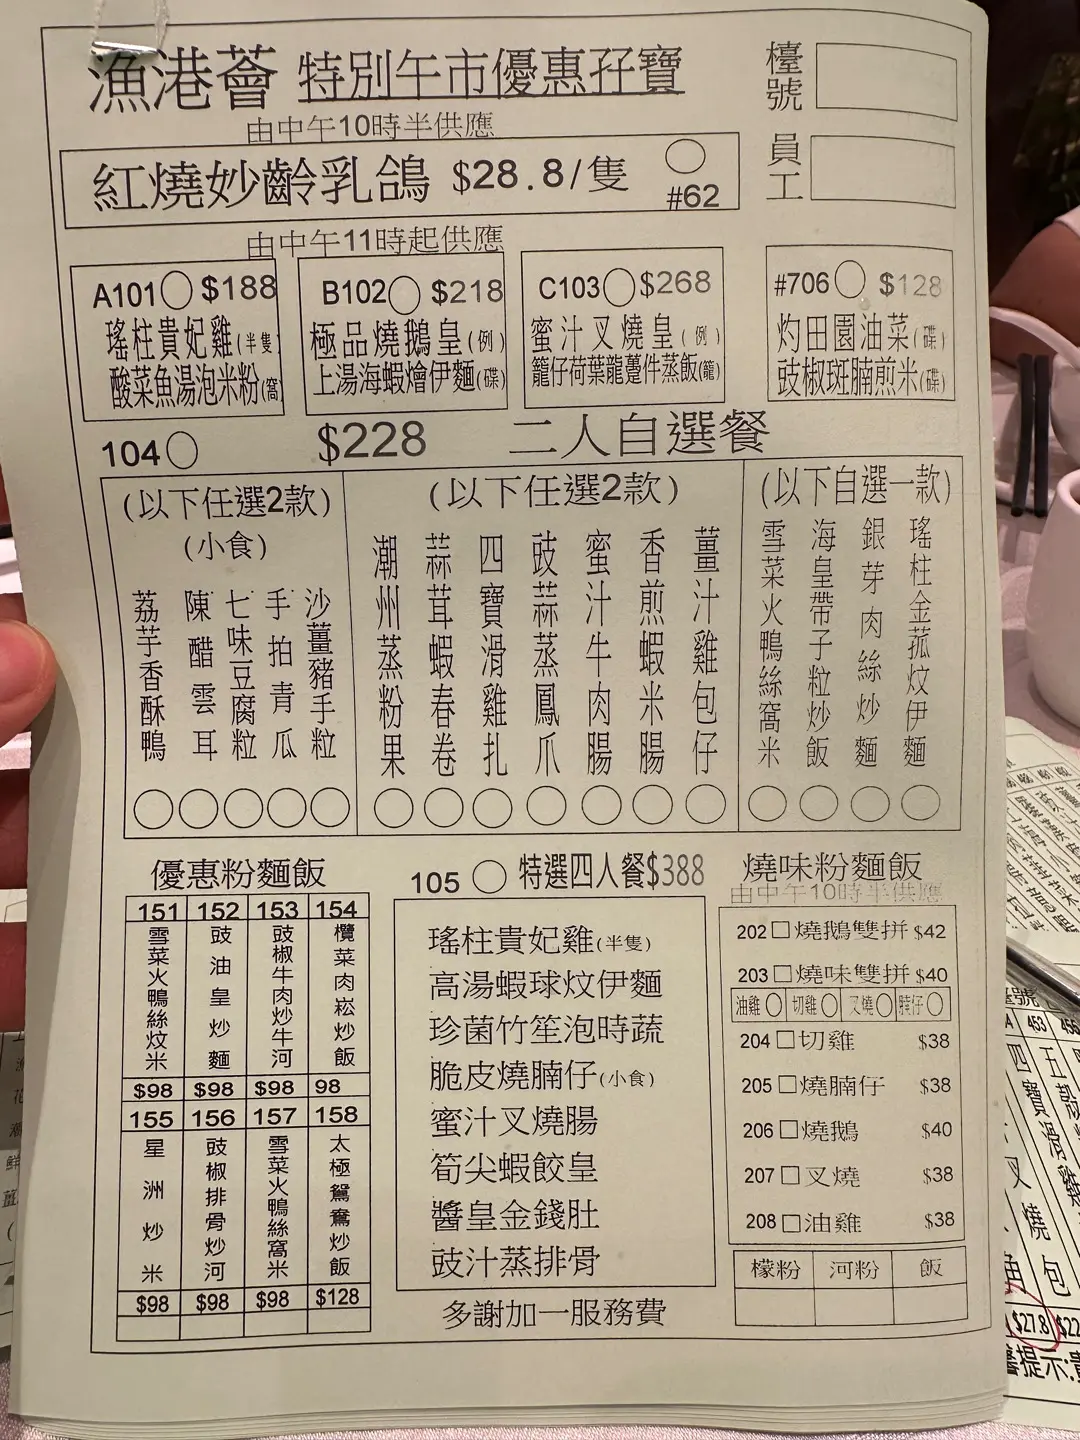 漁港薈 特別午市優惠孖寶
檯號
由中午10時半供應
紅燒妙齡乳鴿 $28.8/隻
#62
員工
由中午11時起供應
A101 $188
瑤柱貴妃雞(半隻)
酸菜魚湯泡米粉(窩)
B102 $218
極品燒鵝皇(例)
上湯海蝦燴伊麵(碟)
C103 $268
蜜汁叉燒皇(例)
籠仔荷葉龍躉件蒸飯(籠)
#706 $128
灼田園油菜(碟)
豉椒斑腩煎米(碟)
104 $228 二人自選餐
(以下任選2款)
(小食)
荔芋香酥鴨
陳醋雲耳
七味豆腐粒
手拍青瓜
沙薑豬手粒
(以下任選2款)
潮州蒸粉果
蒜茸蝦春卷
四寶滑雞扎
豉蒜蒸鳳爪
蜜汁牛肉腸
香煎蝦米腸
薑汁雞包仔
(以下自選一款)
雪菜火鴨絲窩米
海皇帶子粒炒飯
銀芽肉絲炒麵
瑤柱金菰炆伊麵
優惠粉麵飯
151 152 153 154
雪菜火鴨絲炆米
豉油皇炒麵
豉椒牛肉炒牛河
欖菜肉崧炒飯
$98 $98 $98 98
155 156 157 158
星洲炒米
豉椒排骨炒河
雪菜火鴨絲窩米
太極鴛鴦炒飯
$98 $98 $98 $128
105 特選四人餐$388
瑤柱貴妃雞(半隻)
高湯蝦球炆伊麵
珍菌竹笙泡時蔬
脆皮燒腩仔(小食)
蜜汁叉燒腸
筍尖蝦餃皇
醬皇金錢肚
豉汁蒸排骨
多謝加一服務費
燒味粉麵飯
由中午10時半供應
202 燒鵝雙拼 $42
203 燒味雙拼 $40
油雞 切雞 叉燒 腩仔
204 切雞 $38
205 燒腩仔 $38
206 燒鵝 $40
207 叉燒 $38
208 油雞 $38
檬粉 河粉 飯
453
四寶滑雞
叉燒包
$27.8
提示: